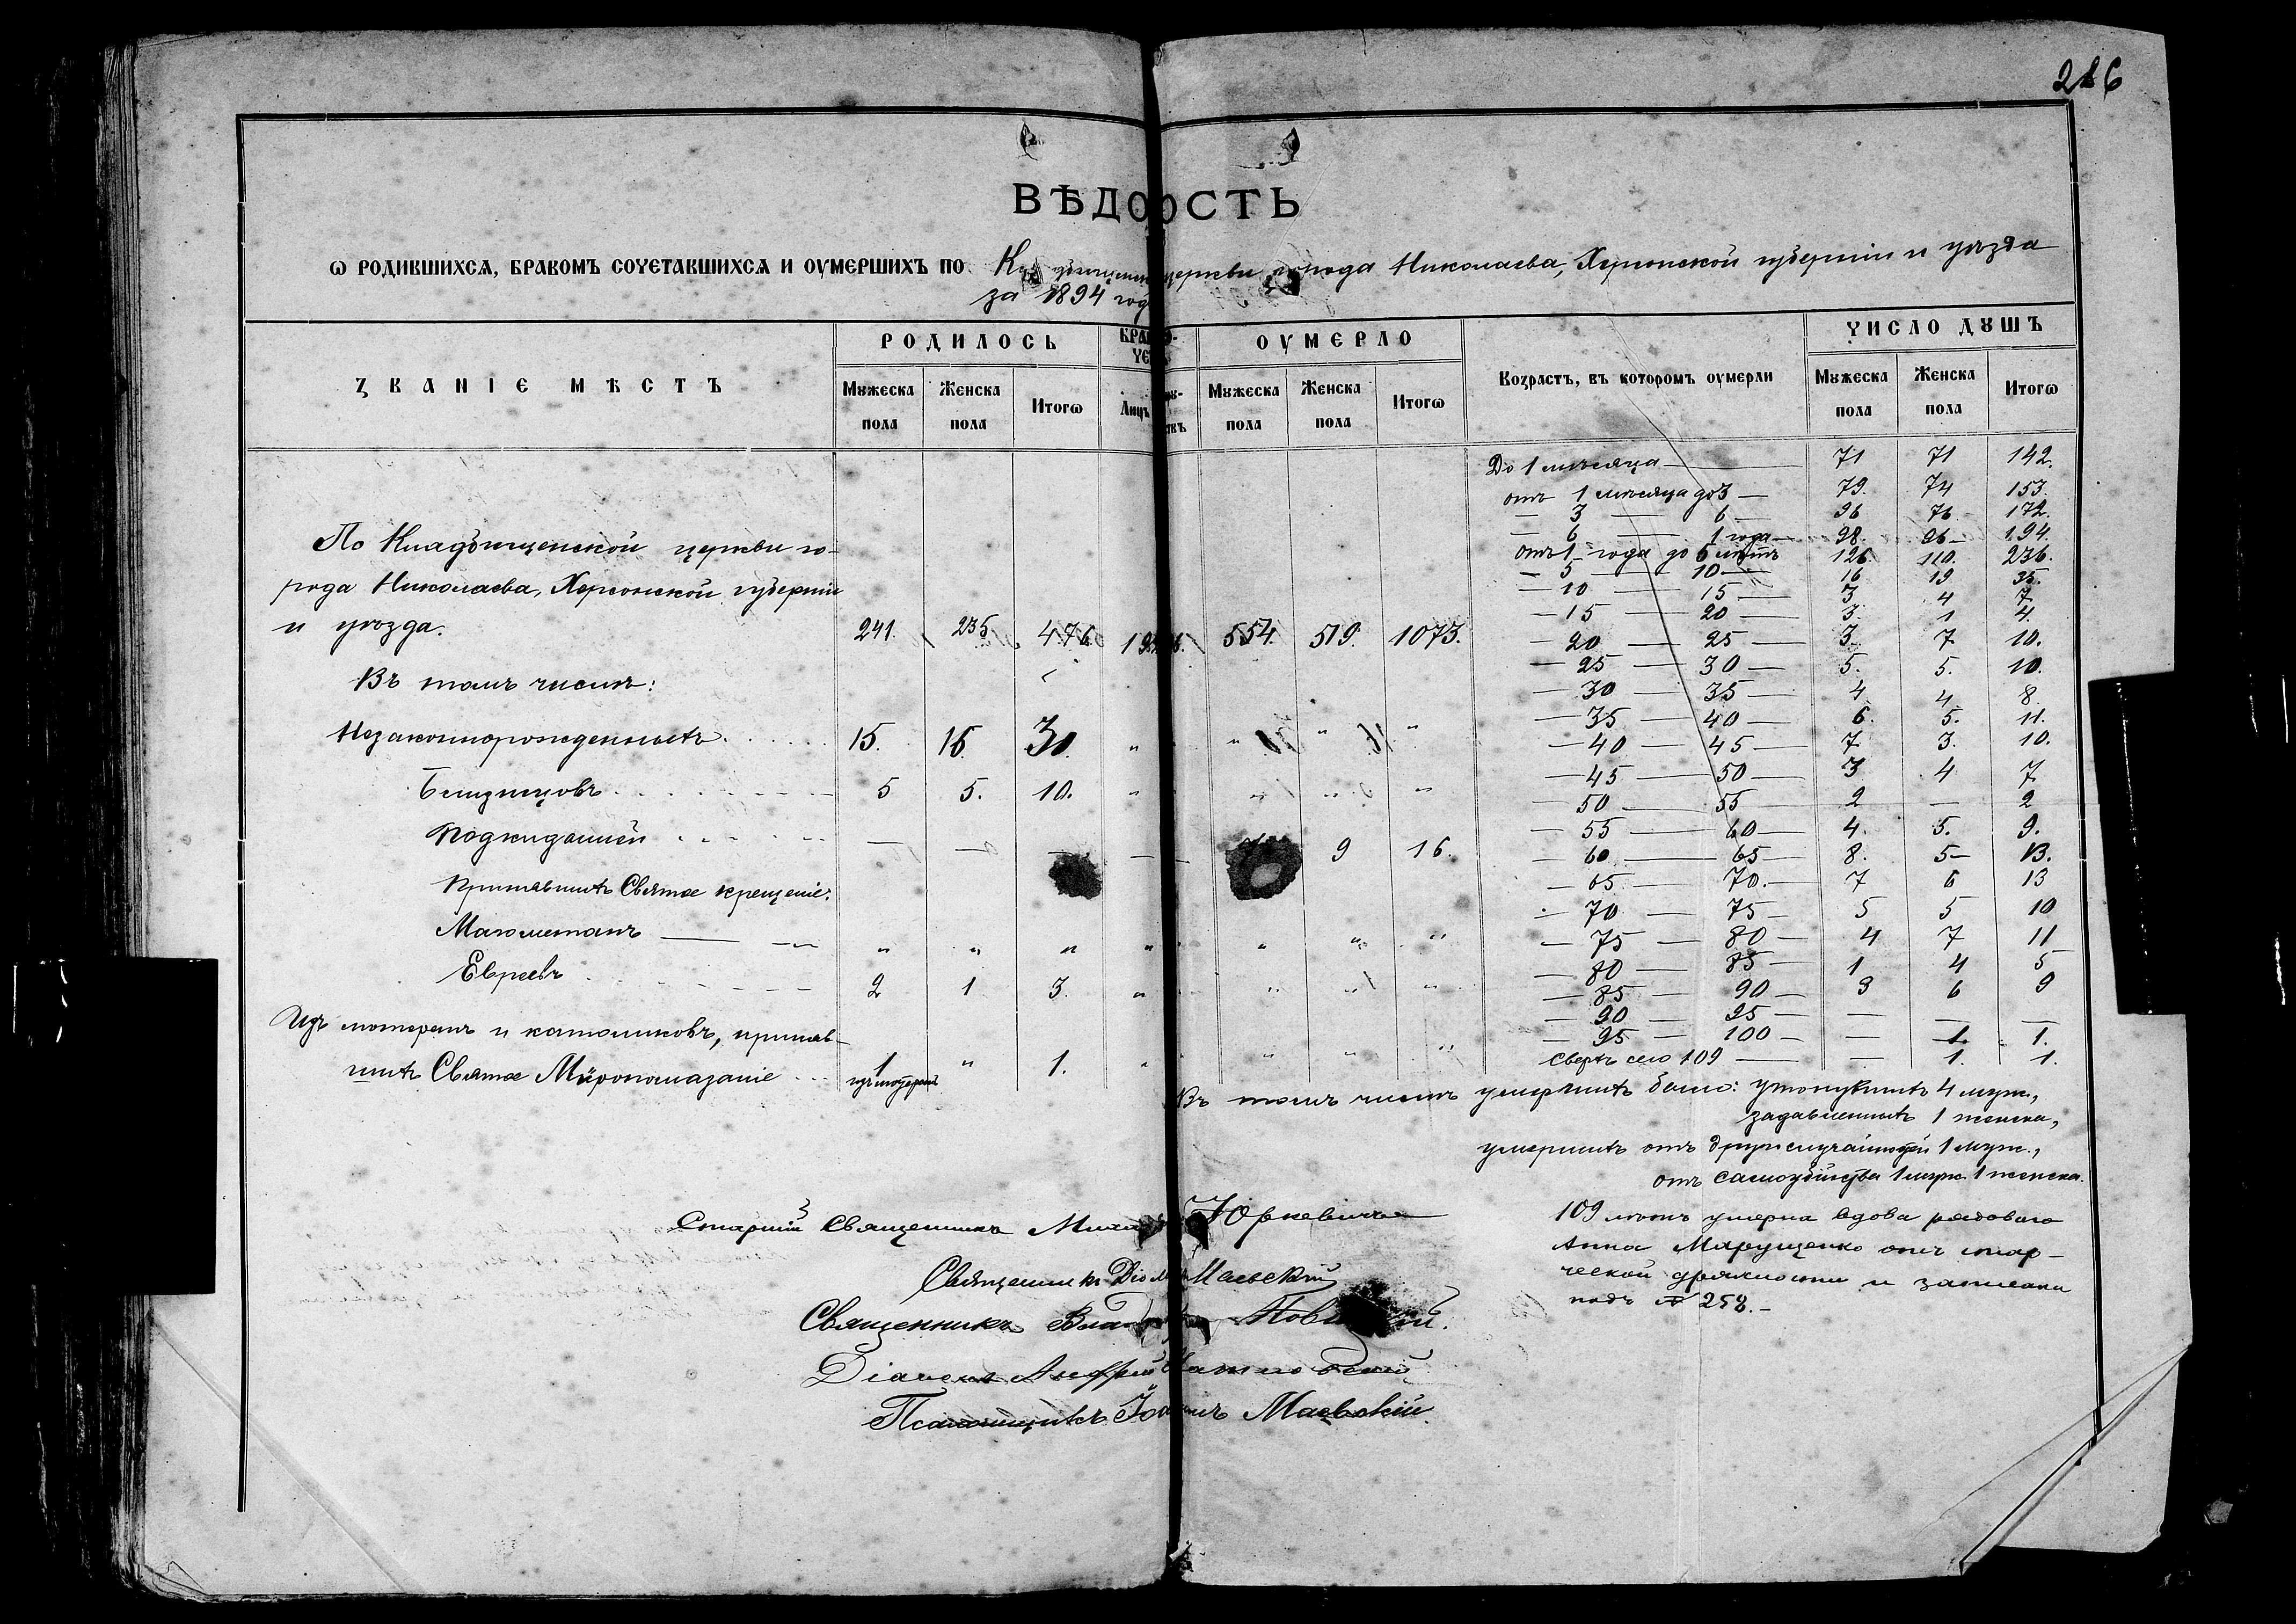 286
ВѢДОМОСТЬ
Ѡ РОДИВШИХСѦ, БРАКОМЪ СОЧЕТАВШИХСѦ И ОУМЕРШИХЪ ПО Кладбищенской церкви города Николаева, Херсонской губерніи и уѣзда
за 1894 годъ
ЗВАНІЕ МѢСТЪ
РОДИЛОСЬ
ОУМЕРЛО
Возрастъ, въ которомъ оумерли
ЧИСЛО ДУШЪ
Мужеска пола Женска пола Итогѡ Лицъ Мужеска пола Женска пола Итогѡ Мужеска пола Женска пола Итогѡ
До 1 мѣсяца — 71 71 142.
отъ 1 мѣсяца до 3 — 79. 74 153.
— 3 — 6 — 96 76 172.
— 6 — 1 года — 98. 96 — 194.
отъ 1 года до 5 лѣтъ 126. 110. 236.
— 5 — 10 — 16 19 35.
— 10 — 15 — 3 4 7
— 15 — 20 — 3. 1 4.
— 20 — 25 — 3. 7 10.
— 25 — 30 — 5. 5. 10.
— 30 — 35 — 4 4 8
— 35 — 40 — 6. 5. 11.
— 40 — 45 — 7 3. 10.
— 45 — 50 — 3 4 7
— 50 — 55 — 2 — 2
— 55 — 60 — 4. 5. 9.
— 60 — 65 — 8. 5 — 13.
— 65 — 70. — 7 6 13
— 70 — 75 — 5 5 10
— 75 — 80 — 4 7 11
— 80 — 85 — 1 4 5
— 85 — 90 — 3 6 9
— 90 — 95 — — — —
— 95 — 100 — — 1. 1.
Сверхъ сего 109 — — 1. 1.
По Кладбищенской церкви го-
рода Николаева, Херсонской губерніи
и уѣзда. 241. 235 476 554. 519. 1073.
Въ томъ числѣ:
Незаконнорожденныхъ 15. 15. 30. " " " "
Близнецовъ 5 5. 10. " " " "
Подкидышей — — — — 9 16.
Принявшихъ Святое крещеніе:
Магометанъ — " " " " " " "
Евреевъ 2 1 3. " " " "
Изъ лютеранъ и католиковъ, приняв-
шихъ Святое Мѵропомазаніе 1 " 1. " " " "
изъ лютеранъ
Въ томъ числѣ умершихъ было: утонувшихъ 4 муж.,
задавленныхъ 1 женска,
умершихъ отъ друг. случайностей 1 муж.,
отъ самоубійства 1 муж. 1 женска.
109 лѣтъ умерла вдова рядоваго
Анна Марущенко отъ стар-
ческой дряхлости и записана
подъ № 258. —
Старшій Священникъ Юркевичъ
Священникъ Маевскій
Священникъ
Діаконъ Андрей
Псаломщикъ Іоаннъ Маевскій.